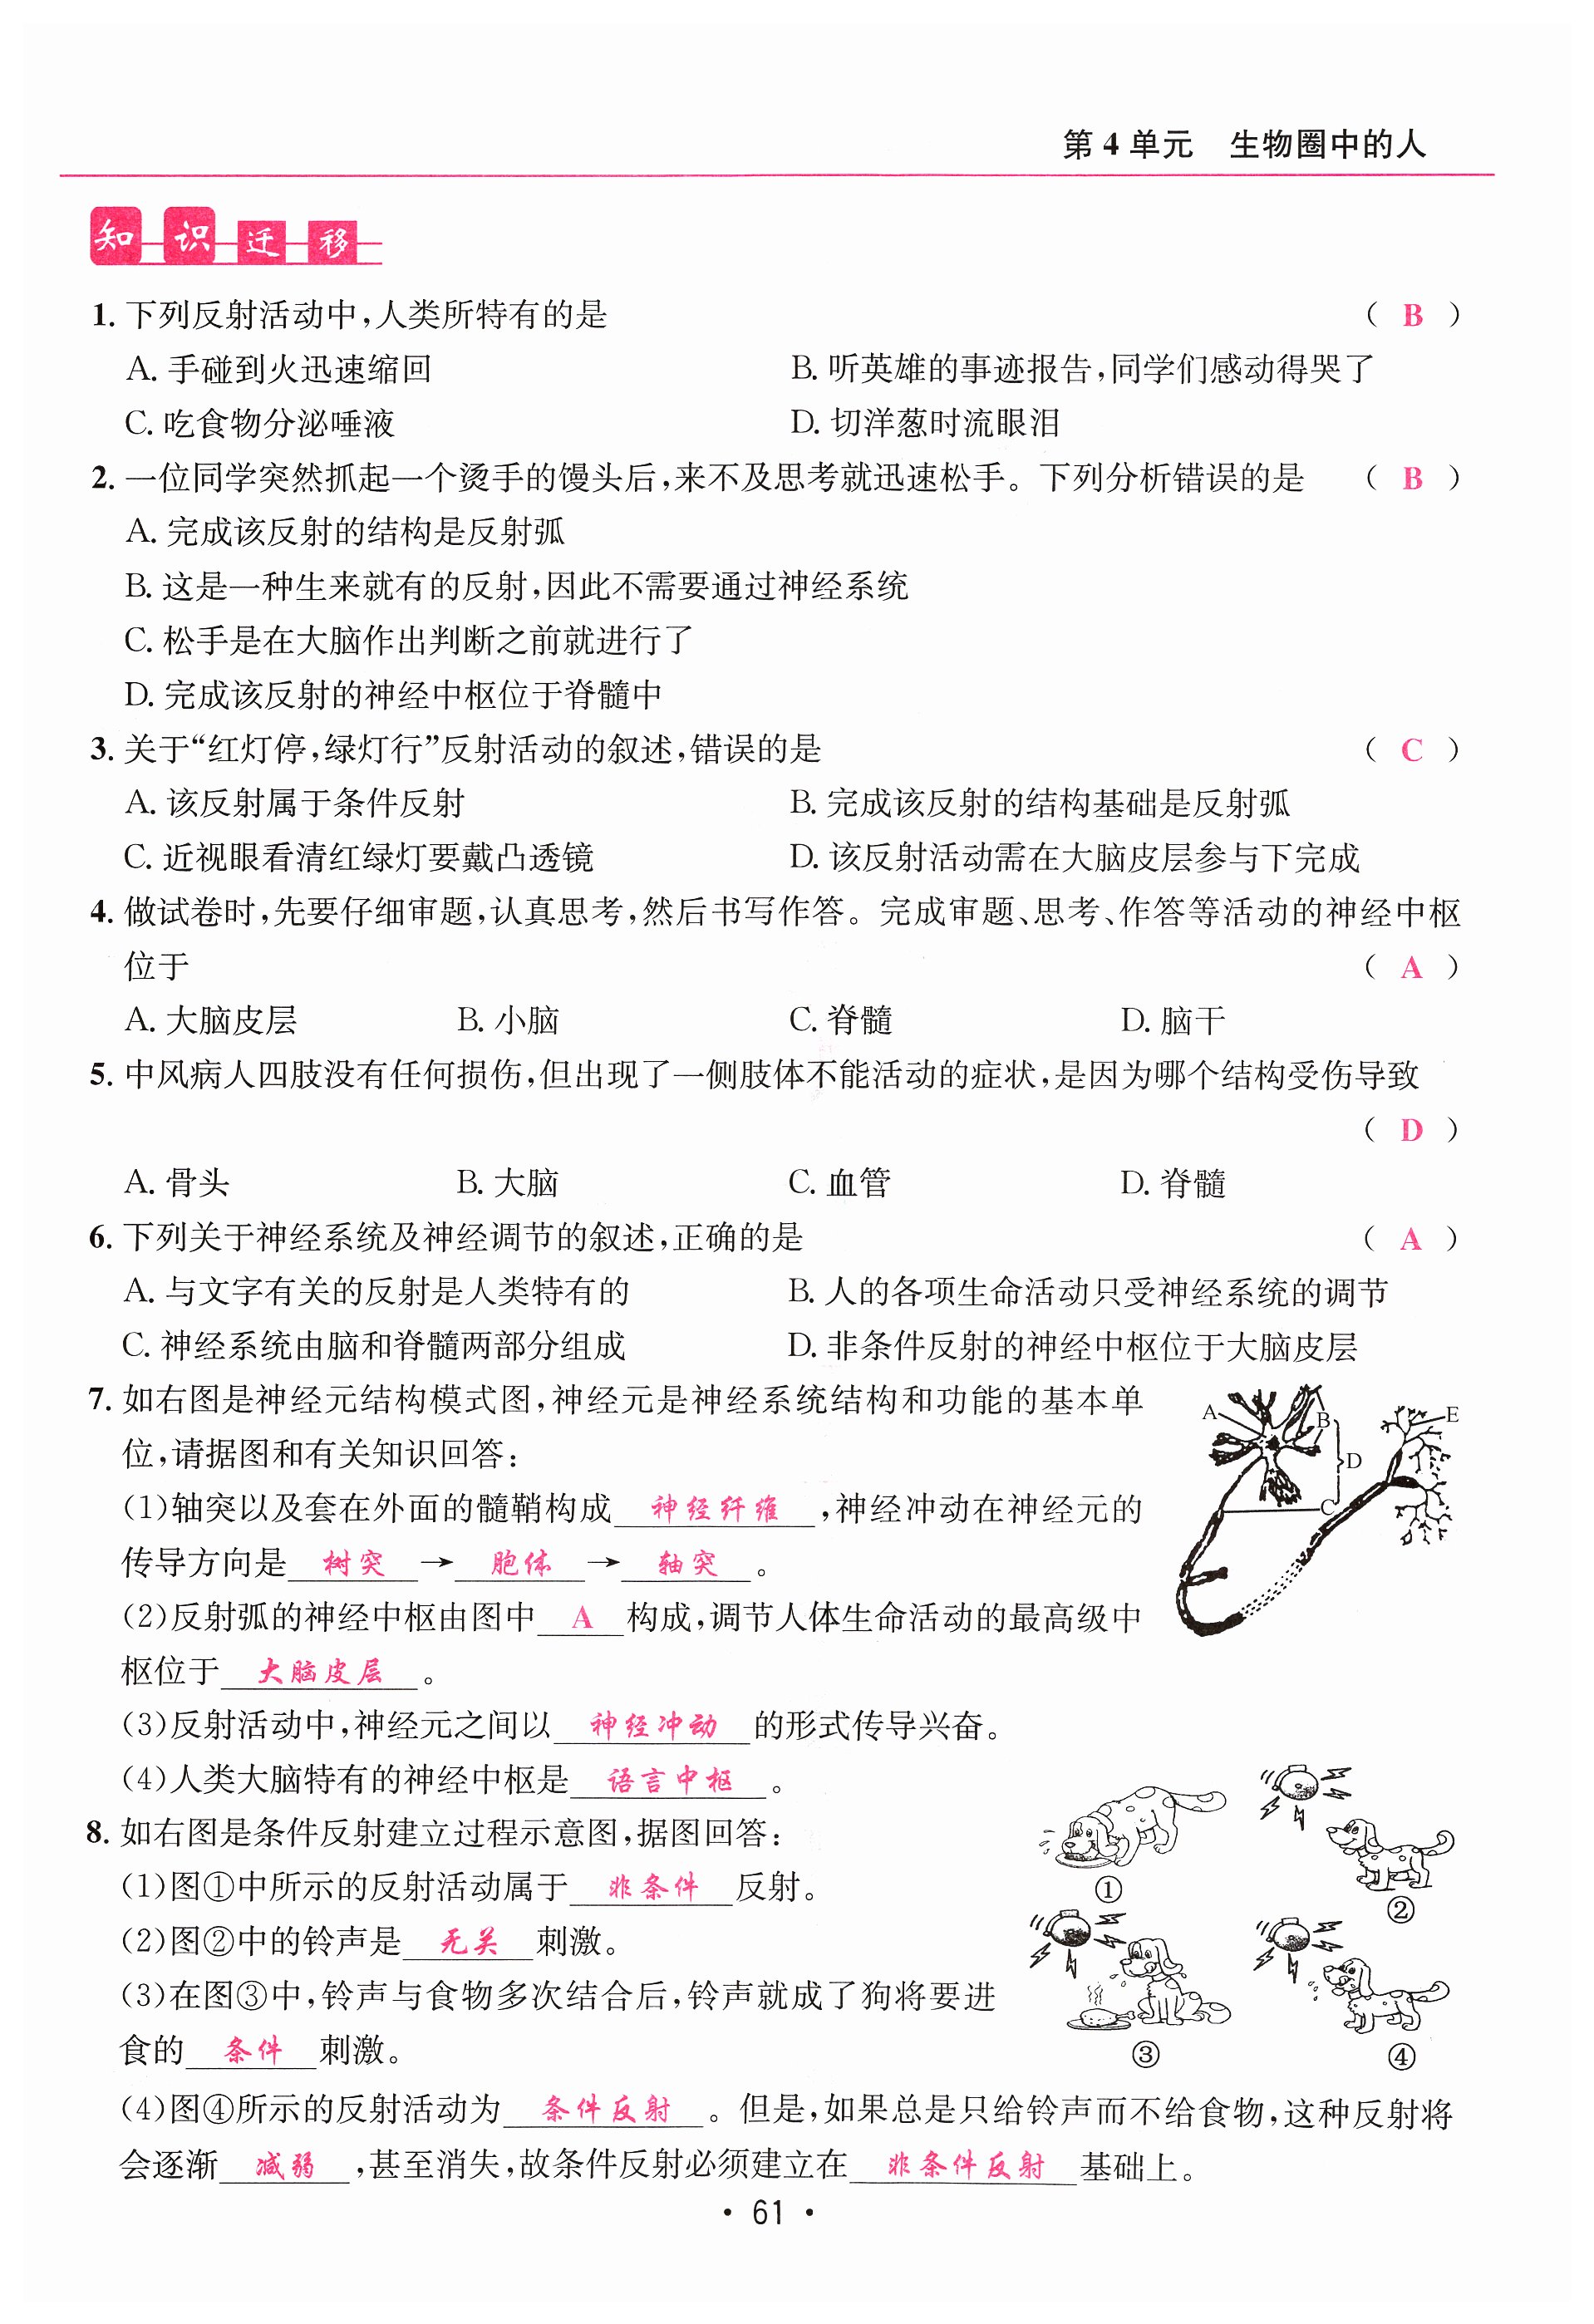 第4单元　生物圈中的人
知识迁移
1. 下列反射活动中,人类所特有的是　（ B ）
A. 手碰到火迅速缩回　B. 听英雄的事迹报告,同学们感动得哭了
C. 吃食物分泌唾液　D. 切洋葱时流眼泪
2. 一位同学突然抓起一个烫手的馒头后,来不及思考就迅速松手。下列分析错误的是　（ B ）
A. 完成该反射的结构是反射弧
B. 这是一种生来就有的反射,因此不需要通过神经系统
C. 松手是在大脑作出判断之前就进行了
D. 完成该反射的神经中枢位于脊髓中
3. 关于“红灯停,绿灯行”反射活动的叙述,错误的是　（ C ）
A. 该反射属于条件反射　B. 完成该反射的结构基础是反射弧
C. 近视眼看清红绿灯要戴凸透镜　D. 该反射活动需在大脑皮层参与下完成
4. 做试卷时,先要仔细审题,认真思考,然后书写作答。完成审题、思考、作答等活动的神经中枢
位于　（ A ）
A. 大脑皮层　B. 小脑　C. 脊髓　D. 脑干
5. 中风病人四肢没有任何损伤,但出现了一侧肢体不能活动的症状,是因为哪个结构受伤导致
（ D ）
A. 骨头　B. 大脑　C. 血管　D. 脊髓
6. 下列关于神经系统及神经调节的叙述,正确的是　（ A ）
A. 与文字有关的反射是人类特有的　B. 人的各项生命活动只受神经系统的调节
C. 神经系统由脑和脊髓两部分组成　D. 非条件反射的神经中枢位于大脑皮层
7. 如右图是神经元结构模式图,神经元是神经系统结构和功能的基本单
位,请据图和有关知识回答:
(1)轴突以及套在外面的髓鞘构成 神经纤维 ,神经冲动在神经元的
传导方向是 树突 → 胞体 → 轴突 。
(2)反射弧的神经中枢由图中 A 构成,调节人体生命活动的最高级中
枢位于 大脑皮层 。
(3)反射活动中,神经元之间以 神经冲动 的形式传导兴奋。
(4)人类大脑特有的神经中枢是 语言中枢 。
A
B
C
D
E
8. 如右图是条件反射建立过程示意图,据图回答:
(1)图①中所示的反射活动属于 非条件 反射。
(2)图②中的铃声是 无关 刺激。
(3)在图③中,铃声与食物多次结合后,铃声就成了狗将要进
食的 条件 刺激。
①
②
③
④
(4)图④所示的反射活动为 条件反射 。但是,如果总是只给铃声而不给食物,这种反射将
会逐渐 减弱 ,甚至消失,故条件反射必须建立在 非条件反射 基础上。
· 61 ·